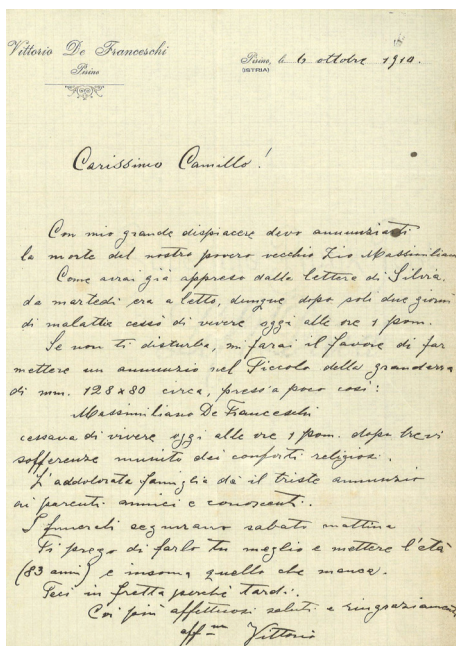 Vittorio De Franceschi
Pisino
Pisino, li 6 ottobre 1910.
(ISTRIA)
Carissimo Camillo!
Con mio grande dispiacere devo annunziarti
la morte del nostro povero vecchio Zio Massimiliano
Come avrai già appreso dalla lettera di Silvia,
da martedì era a letto, dunque dopo soli due giorni
di malattia cessò di vivere oggi alle ore 1 pom.
Se non ti disturba, mi farai il favore di far
mettere un annunzio nel Piccolo della grandezza
di mm. 128 x 80 circa, press'a poco così:
Massimiliano De Franceschi
cessava di vivere oggi alle ore 1 pom. dopo brevi
sofferenze munito dei conforti religiosi.
L'addolorata famiglia dà il triste annunzio
ai parenti amici e conoscenti.
I funerali seguirano sabato mattina
Ti prego di farlo tu meglio e mettere l'età
(83 anni) e insoma quello che manca.
Feci in fretta perchè tardi.
Coi più affettuosi saluti e ringraziamenti
aff.mo Vittorio